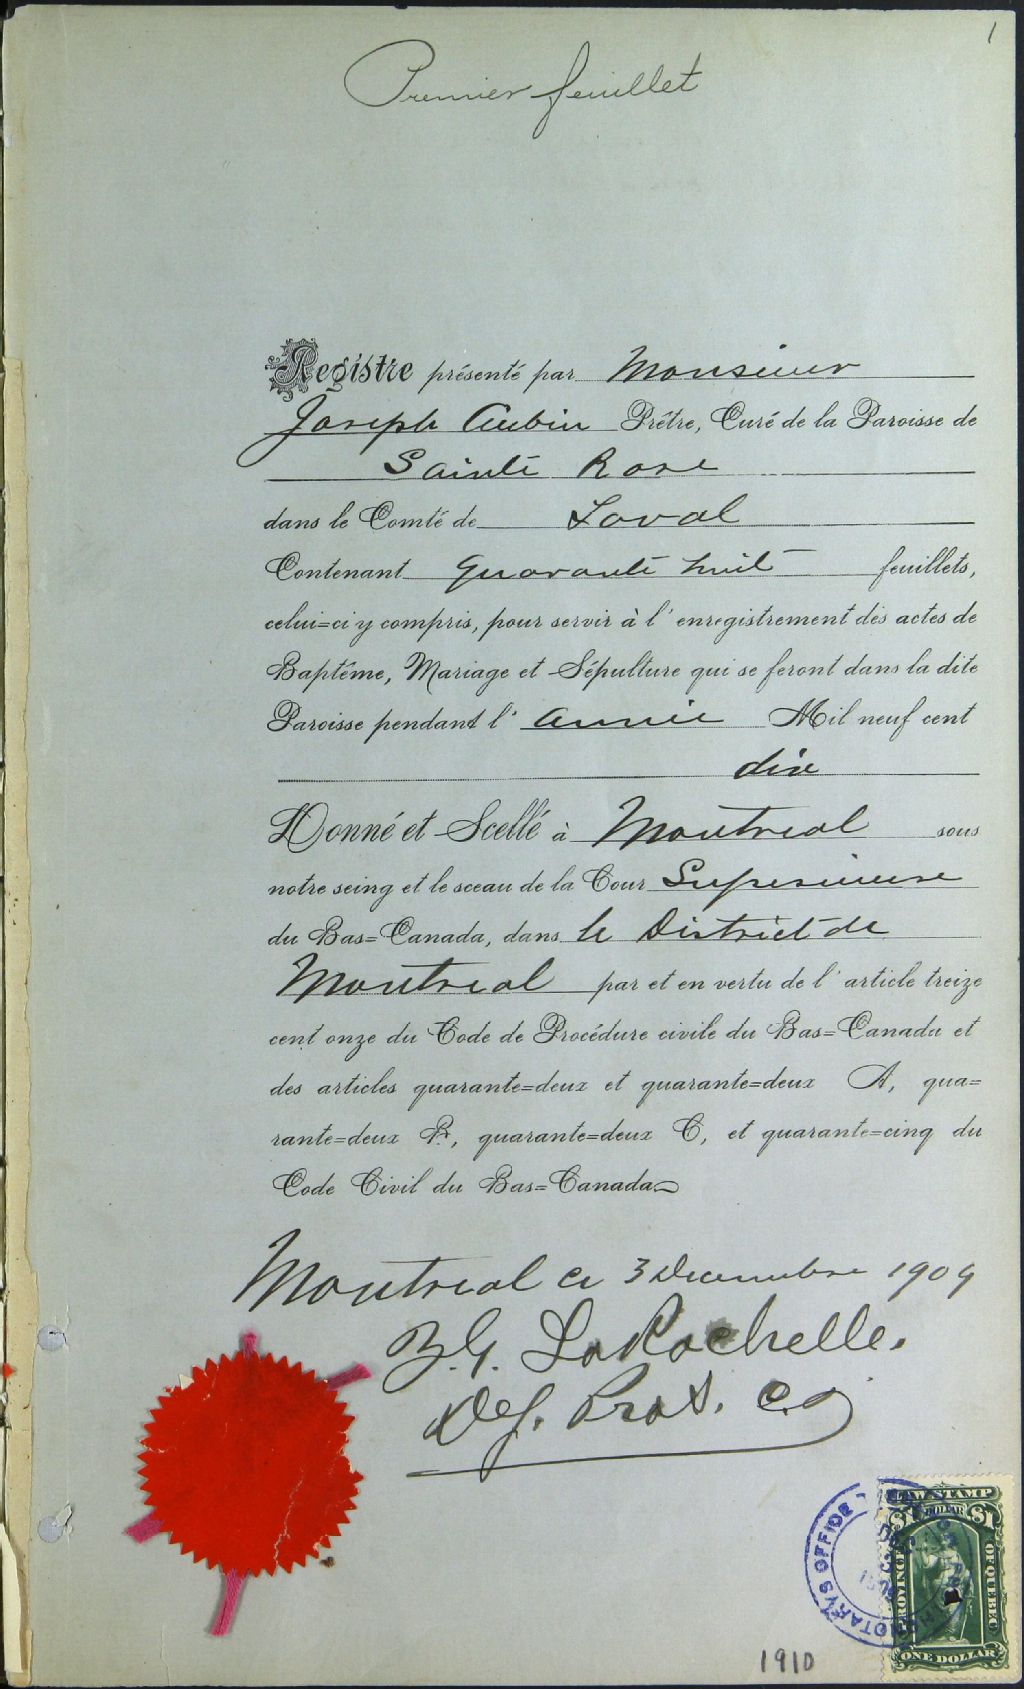 1
Premier feuillet
Registre présenté par Monsieur
Joseph Aubin Prêtre, Curé de la Paroisse de
Sainte Rose
dans le Comté de Laval
Contenant Quarante huit feuillets,
celui=ci y compris, pour servir à l'enregistrement des actes de
Baptême, Mariage et Sépulture qui se feront dans la dite
Paroisse pendant l'année Mil neuf cent
dix
Donné et Scellé à Montreal sous
notre seing et le sceau de la Cour Superieure
du Bas=Canada, dans le District de
Montreal par et en vertu de l'article treize
cent onze du Code de Procédure civile du Bas=Canada et
des articles quarante=deux et quarante=deux A, qua=
rante=deux B, quarante=deux C, et quarante=cinq du
Code Civil du Bas=Canada
Montreal ce 3 Decembre 1909
Z.G. LaRochelle.
Dep. Prot. C.S.
LAW STAMP
$1 DOLLAR $1
PROVINCE OF QUEBEC
ONE DOLLAR
OFFICE
1910